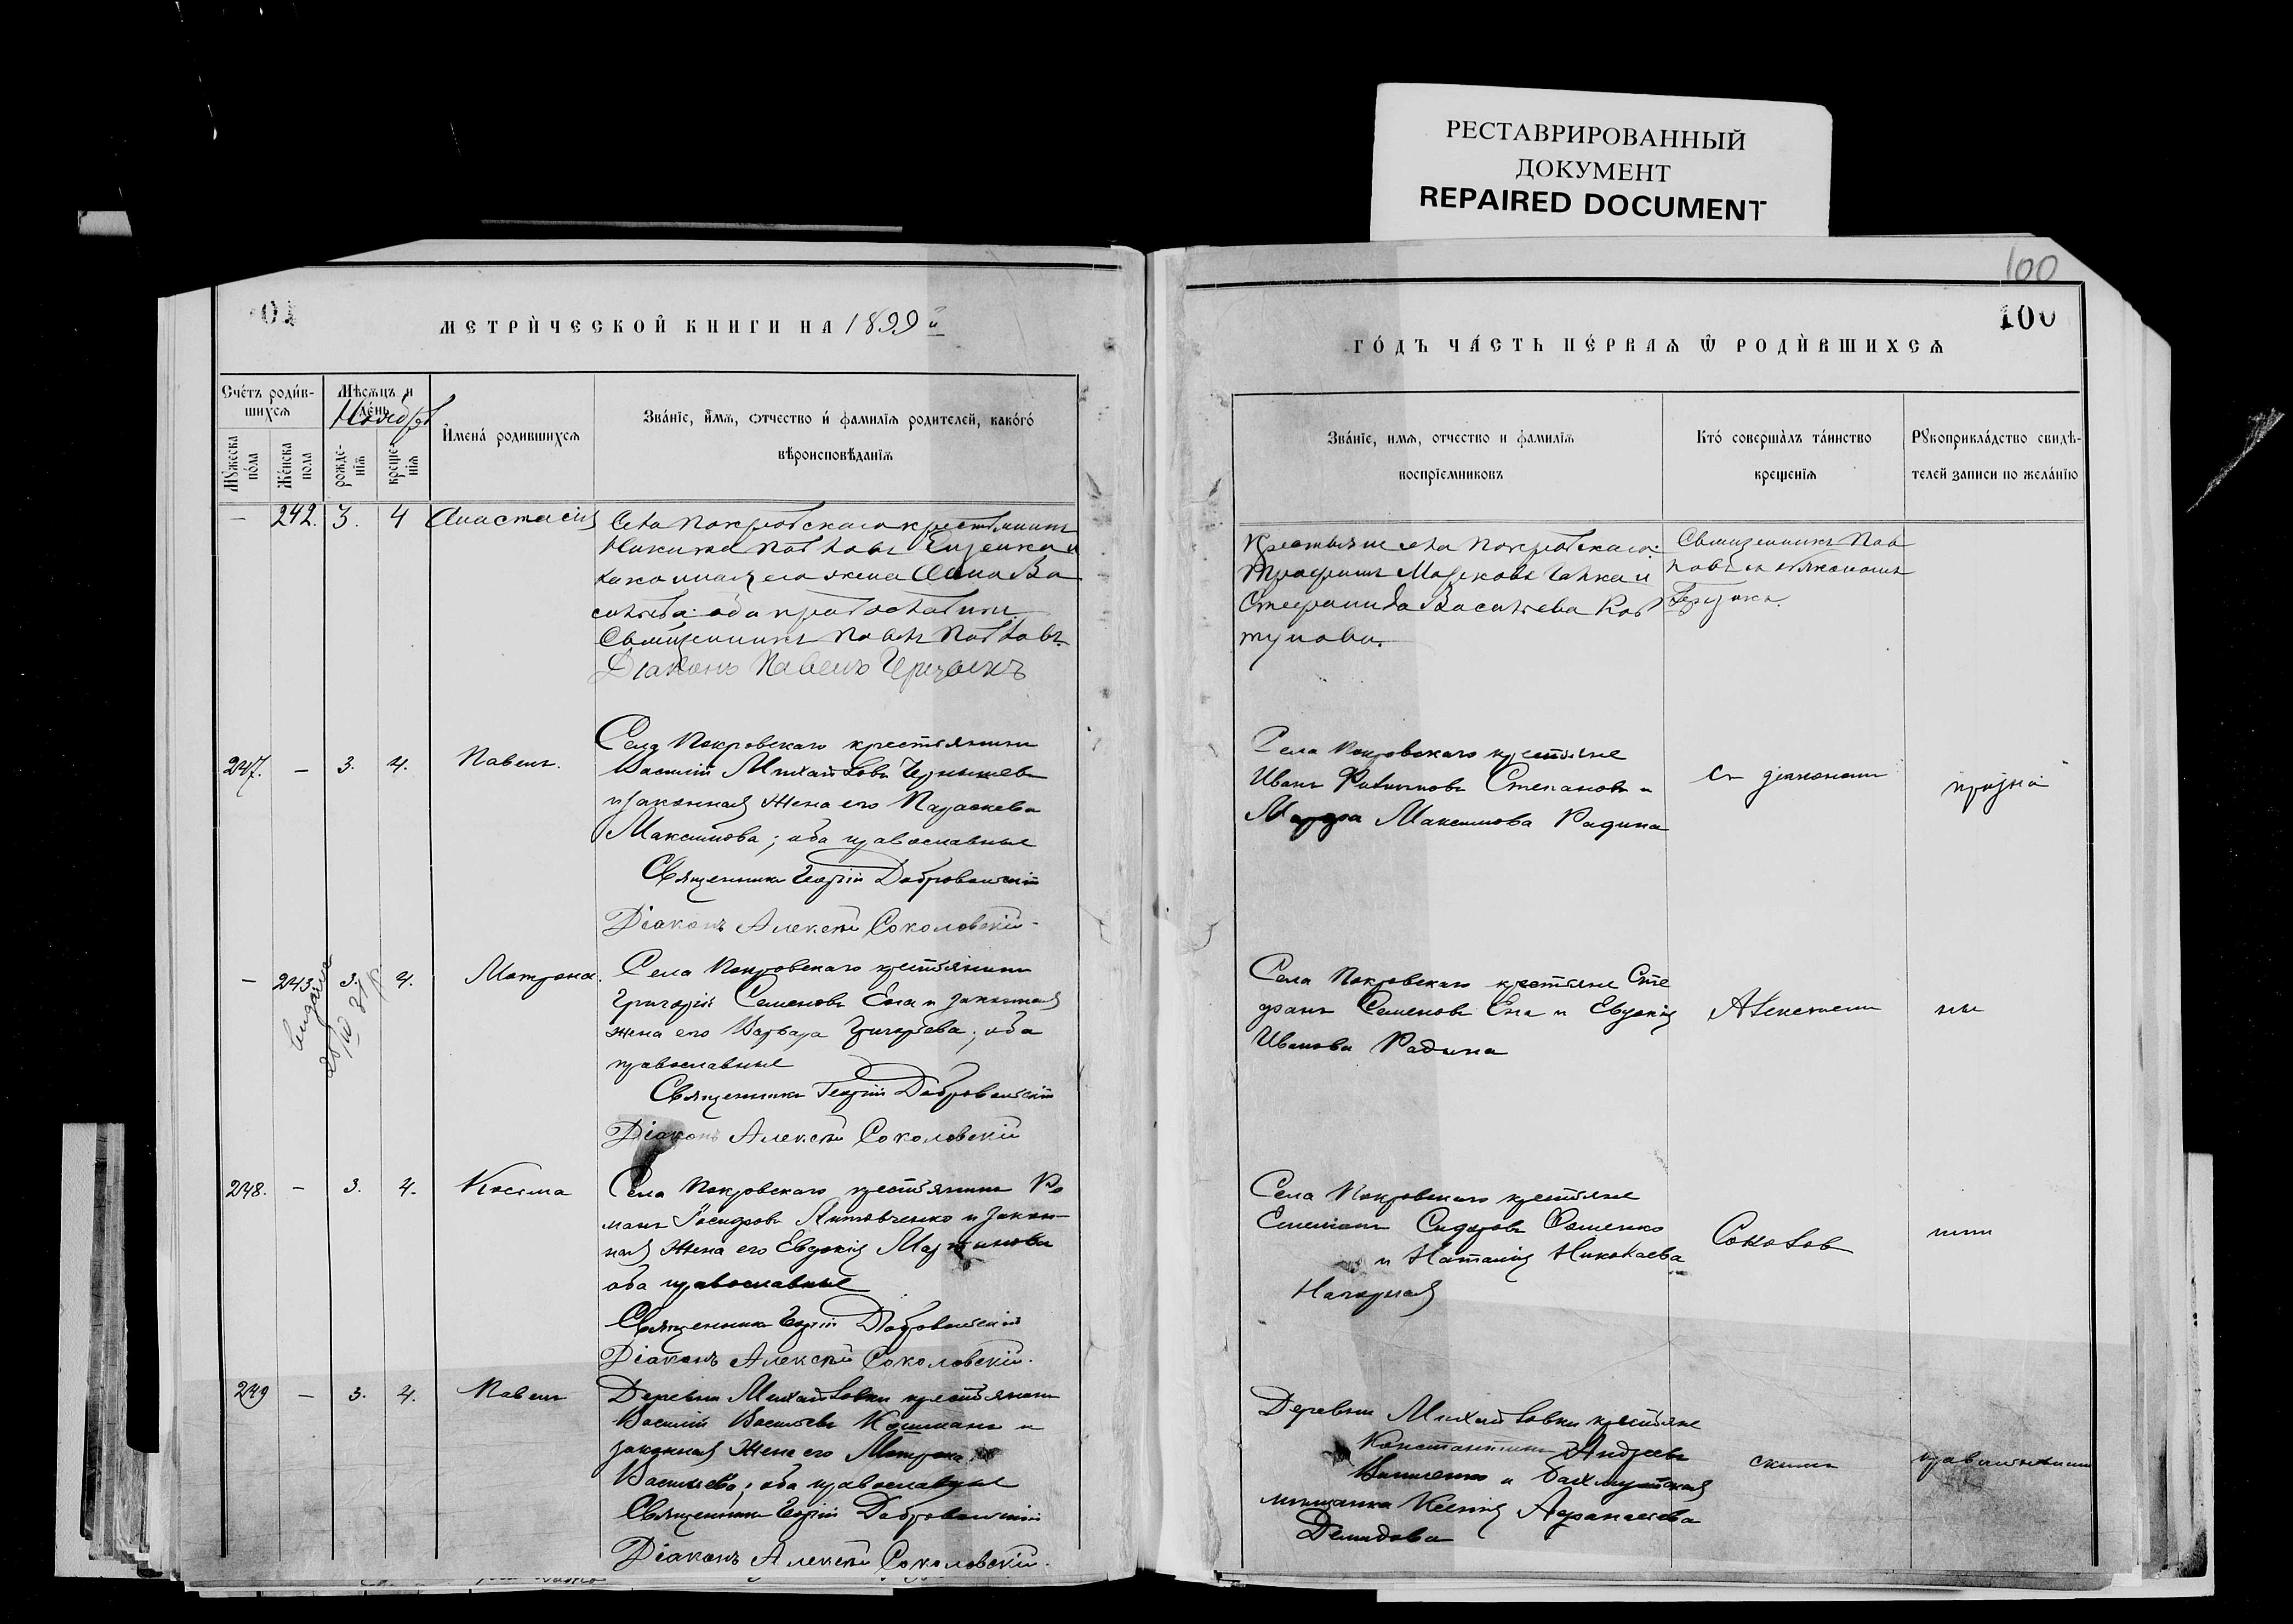 РЕСТАВРИРОВАННЫЙ
ДОКУМЕНТ
REPAIRED DOCUMENT
100
100
МЕТРИ́ЧЕСКОЙ КНИГИ НА 1899й
ГО́ДЪ ЧА́СТЬ ПЕ́РВАѦ Ѿ РОДИ́ВШИХСѦ
Сче́тъ роди́в-
шихсѧ
Мѣсѧцъ и
де́нь
Ноябрь
Мꙋжеска
по́ла
Же́нска
пола
рожде-
нїѧ
креще-
нїѧ
Имена́ родившихсѧ
Зва́нїе, и́мѧ, ѻтчество и́ фамилїѧ родителей, како́гѡ́
вѣроисповѣданїѧ
Зва́нїе, имѧ, отчество и фамилїѧ
воспрїемниковъ
Кто́ соверша́лъ та́инство
крещенїѧ
Рꙋкоприкла́дство свидѣ-
телей записи по жела́нїю
— 242. 3. 4 Анастасія
Села Покровскаго крестьянинъ
Никита Павловъ
законная его жена Анна Ва
сильева: оба православные
Священникъ Павелъ Павловъ.
Діаконъ Павелъ
Крестьяне села Покровскаго:
Марковъ и
Стефанида Васильева Ков
тунова.
Священникъ Пав
ловъ съ діакономъ
247. — 3. 4. Павелъ.
Села Покровскаго крестьянинъ
Василій Михайловъ Чернышевъ
и законная жена его Параскева
Максимова; оба православные
Священникъ Георгій Добровольскій
Діаконъ Алексѣй Соколовскій
Села Покровскаго крестьяне
Иванъ Филипповъ Степановъ и
Марфа Максимова Радина
съ діакономъ
— 243 3. 4. Матрона.
Села Покровскаго крестьянинъ
Григорій Семеновъ Ена и законная
жена его Варвара Григорьева; оба
православные
Священникъ Георгій Добровольскій
Діаконъ Алексѣй Соколовскій
Села Покровскаго крестьяне Сте
фанъ Семеновъ Ена и Евдокія
Иванова Радина
Алексѣемъ
248. — 3. 4. Косьма
Села Покровскаго крестьянинъ Ро
манъ Литовченко и закон-
ная жена его Евдокія Мартинова
оба православные
Священникъ Георгій Добровольскій
Діаконъ Алексѣй Соколовскій.
Села Покровскаго крестьяне
Сидоровъ Фоменко
и Наталія Николаева
Нагорная
Соколов
249 — 3. 4. Павелъ
Деревни Михайловки крестьянинъ
Василій Васильевъ Кошманъ и
законная жена его Матрона
Васильева; оба православные
Священникъ Георгій Добровольскій
Діаконъ Алексѣй Соколовскій.
Деревни Михайловки крестьяне
Константинъ Андреевъ
и Бахмутская
мѣщанка Ксенія Афанасьева
Демидова
скимъ